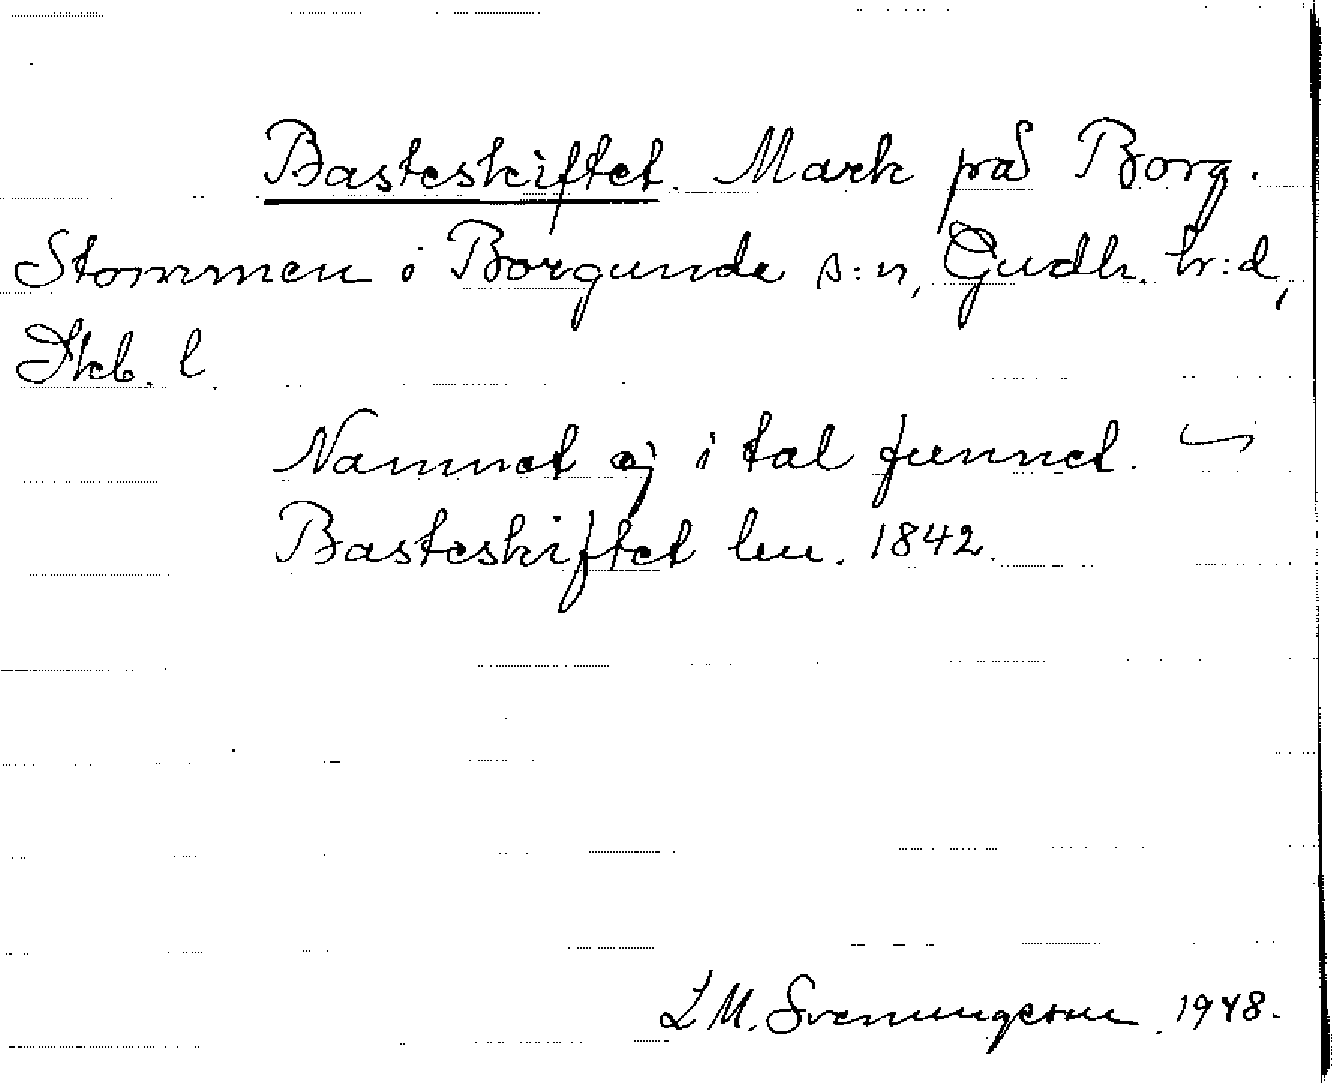 Basteskiftet. Mark på Borg.
Stommen i Borgunda s:n, Gudh. hr:d,
Skb. l.
Namnet ej i tal funnet. ~
Basteskiftet lm. 1842.
L M. Svenungsson. 1948.